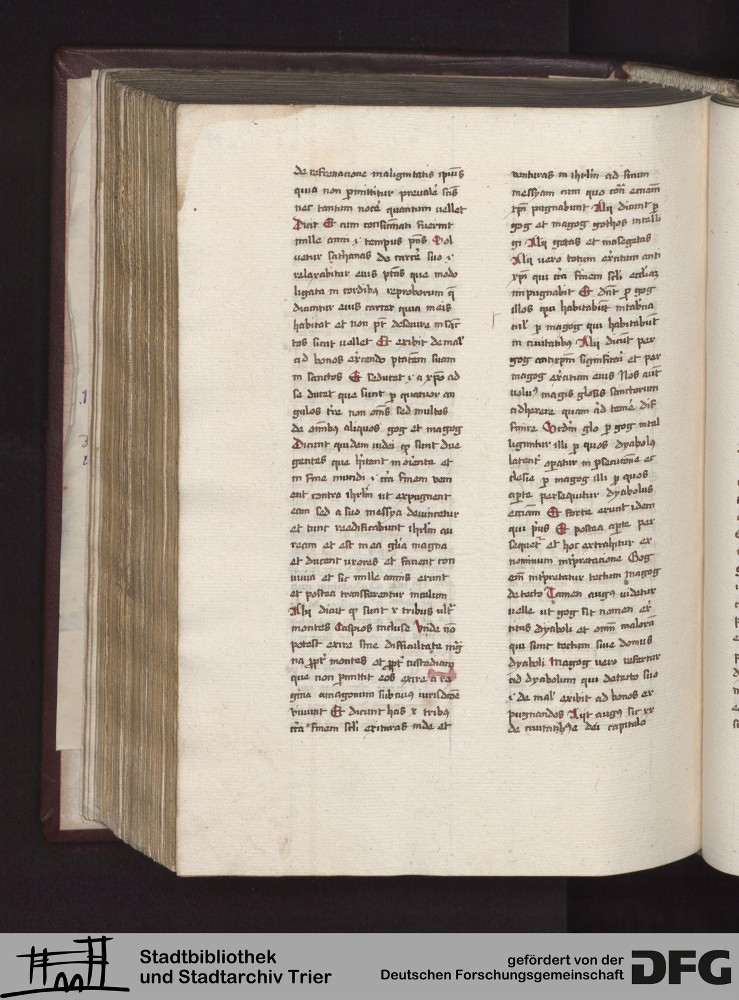 de refrenacione malignitatis ipius
quia non permittitur prevale scis
nec tantum noce quantum vellet
Dicit Et cum consumati fuerint
mille anni .i. tempus pns Sol
vetur sathanas de carce suo .i.
relaxabitur eius ptas que modo
ligata in cordibus reproborum q
dicuntur eius carcer quia in eis
habitat et non pt deseuire in san
tos sicut vellet Et exibit de mal
ad bonos exercendo ptatem suam
in sanctos Et seducet .i. a xpo ad
se ducet que sunt p quatuor an
gulos tre non oms sed multos
de omibus aliquos gog et magog
Dicunt quidem iudei quod sunt due
gentes que hitant in oriente et
in fine mundi .i. circa finem veni
ent contra ihrlm ut expugnent
eam sed a suo messya deuincetur
et tunc reedificabunt ihrlm au
ream et est in ea glia magna
et ducent vxores et facient con
uiuia et sic mille annis erunt
et postea transferentur in celum
Alij dicut quod sunt x tribus ultra
montes Caspios incluse Vnde no
potest exire sine difficultate mag
na propter montes et propter custodiam
que non pmittit eos exire a re
gina amazonum sub cuius iurisdcoe
viuunt Et dicunt has x tribus
circa finem scli exituras inde et
venturas in ihrlm ad suum
messyam cum quo con ecciam
xpi pugnabunt Alij dicunt p
gog et magog gothos intelli
gi Alij getas et masegetas
Alij vero totum exercitum anti
xpi qui circa finem scli eccliaz
impugnabit Et dnt p gog
illos qui habitabunt in taberna
culis p magog qui habitabut
in ciuitatibus Alij dicut per
gog antixpm significari et per
magog exercitum eius Nos aut
volumus magis glosis sanctorum
adherere quam ad teme dif
finire Secundum glo p gog intel
liguntur illi p quos dyabolus
latenter operatur in psecucione ec
clesie p magog illi p quos
aperte persequitur dyabolus
ecciam Et forte erunt idem
qui prius Et postea aperte per
sequetur et hoc extrahitur ex
nominum interpretacione Gog
enim interpretatur tectum magog
de tecto Tamen augus videtur
velle ut gog sit nomen exer
citus dyaboli et omnium malorum
qui sunt tectum siue domus
dyaboli Magog vero refertur
ad dyabolum qui de tecto suo
.i. de malis exibit ad bonos ex
pugnandos Ait augus sic xx
de ciuitate dei capitulo
Stadtbibliothek
und Stadtarchiv Trier
gefördert von der
Deutschen Forschungsgemeinschaft
DFG